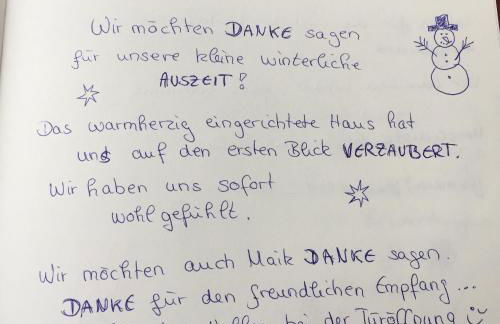 Wir möchten DANKE sagen
für unsere kleine winterliche
AUSZEIT!
Das warmherzig eingerichtete Haus hat
uns auf den ersten Blick VERZAUBERT.
Wir haben uns sofort
wohl gefühlt.
Wir möchten auch Maik DANKE sagen.
DANKE für den freundlichen Empfang...
bei der Türöffnung